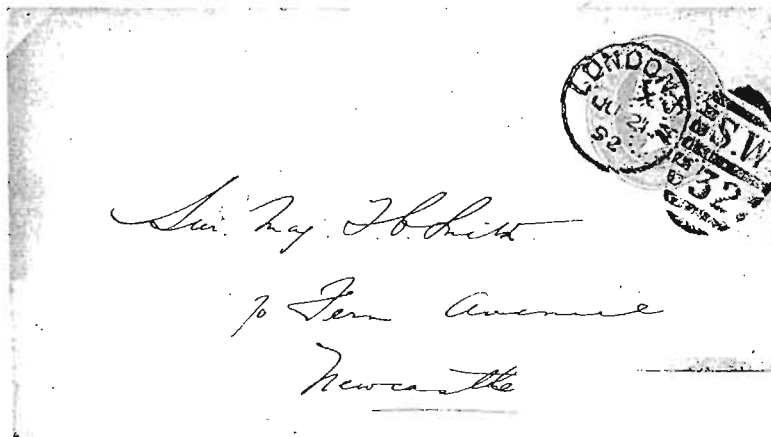 LONDON S.W
X
JU 21
92
S.W
32
Sur. Maj. F. C. Smith
70 Fern Avenue
Newcastle